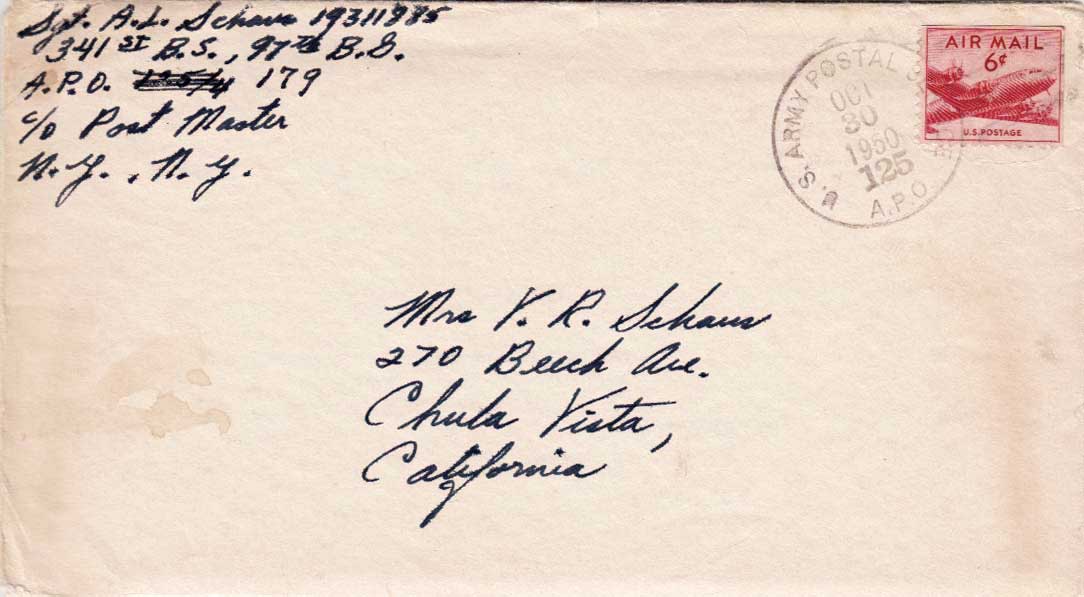 Sgt. A.L. Schaus 19311885
341 ST B.S., 97th B.G.
A.P.O. 179
c/o Post Master
N.Y., N.Y.
U.S. ARMY POSTAL
OCT
30
1950
125
A.P.O.
AIR MAIL
6¢
U.S. POSTAGE
Mrs V. R. Schaus
270 Beech Ave.
Chula Vista,
California